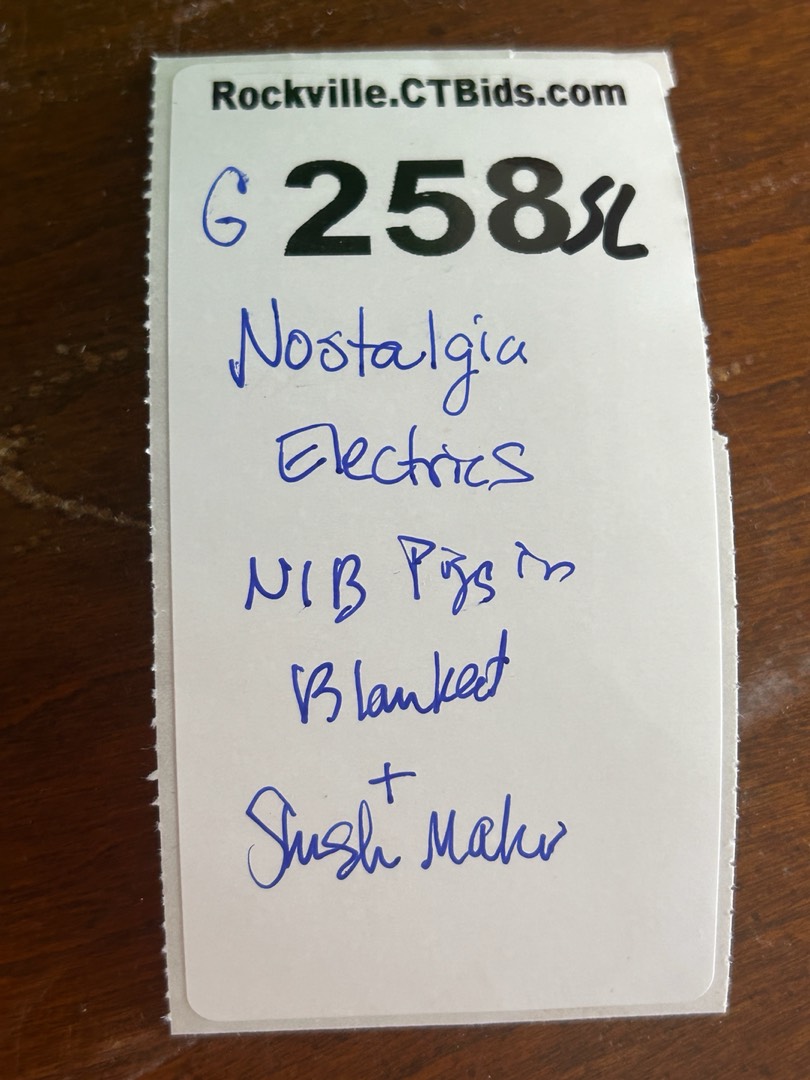 Rockville.CTBids.com
G 258SL
Nostalgia
Electrics
NIB Pigs in
Blanket
+
Slush Maker